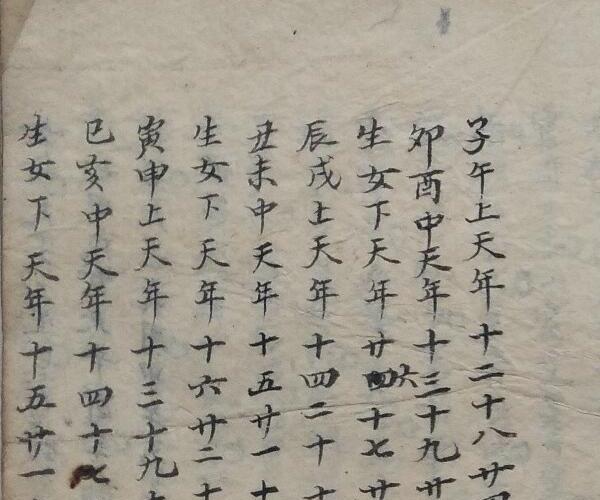 子午上天年十二十八廿四
卯酉中天年十三十九廿
生女下天年廿六十七廿
辰戌上天年十四二十十
丑未中天年十五廿一十
生女下天年十六廿二十
寅申上天年十三十九
巳亥中天年十四十七
生女下天年十五廿一